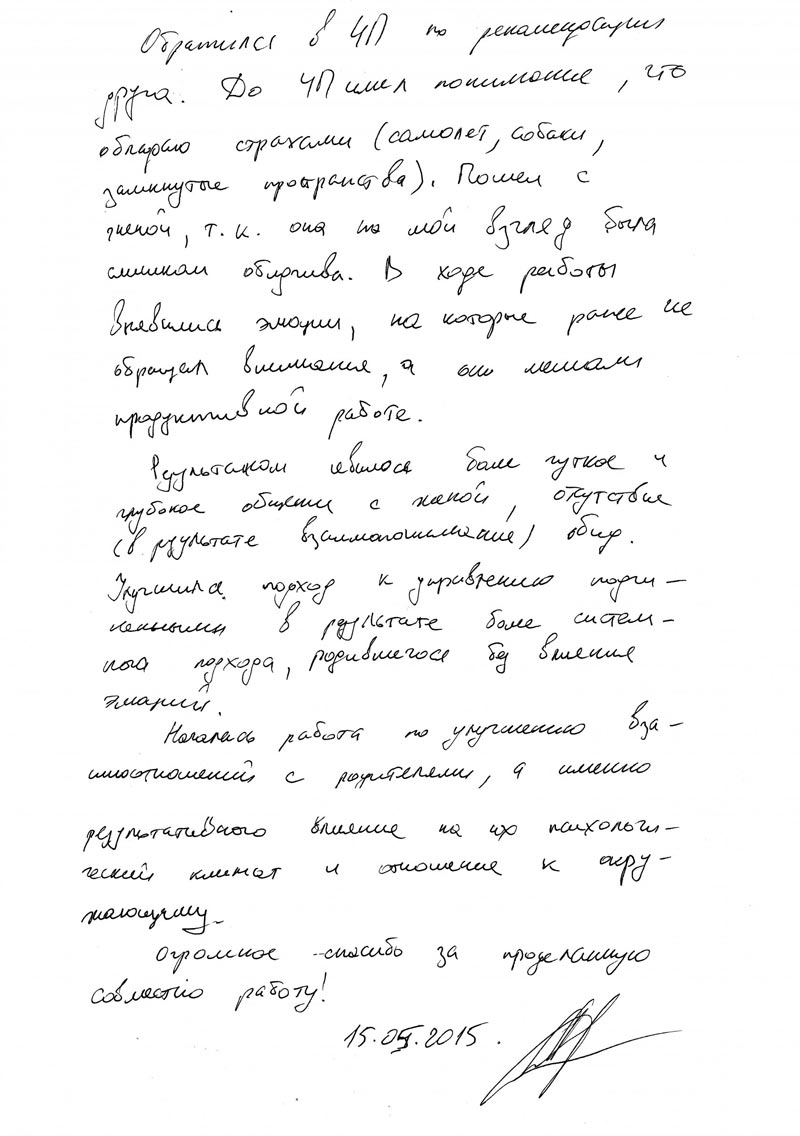 Обратился в ЧП по рекомендации
друга. До ЧП имел понимание, что
обладаю страхами (самолет, собаки,
замкнутые пространства). Пошел с
женой, т.к. она на мой взгляд была
слишком обидчива. В ходе работы
выявились эмоции, на которые ранее не
обращал внимания, а они мешали
продуктивной работе.
Результатом явилось более чуткое и
глубокое общение с женой, отсутствие
(в результате взаимопонимания) обид.
Улучшился подход к управлению подчи-
ненными в результате более систем-
ного подхода, родившегося без влияния
эмоций.
Началась работа по улучшению вза-
имоотношений с родителями, а именно
результативного влияния на их психологи-
ческий климат и отношение к окру-
жающему.
Огромное спасибо за проделанную
совместно работу!
15.05.2015.